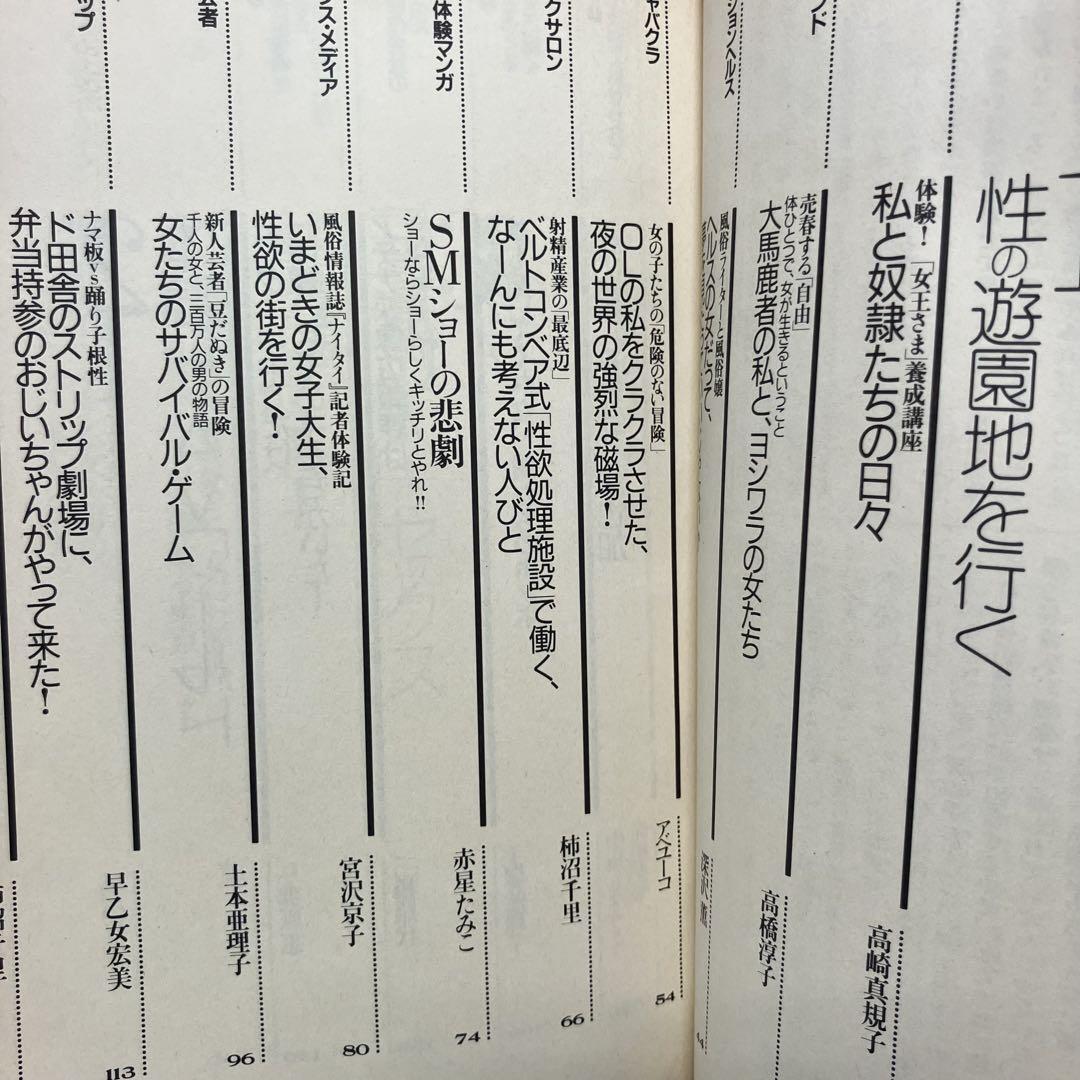 性の遊園地を行く
体験!「女王さま」養成講座
私と奴隷たちの日々
高崎真規子
ンド
売春する「自由」
体ひとつで、女が生きるということ
大馬鹿者の私と、ヨシワラの女たち
高橋淳子
ションヘルス
風俗ライターと風俗嬢
ヘルスの女たちって、
44
ャバクラ
女の子たちの「危険のない冒険」
OLの私をクラクラさせた、
夜の世界の強烈な磁場!
アベユーコ
54
クサロン
射精産業の「最底辺」
ベルトコンベア式「性欲処理施設」で働く、
なーんにも考えない人びと
柿沼千里
66
体験マンガ
SMショーの悲劇
ショーならショーらしくキッチリとやれ!!
赤星たみこ
74
ス・メディア
風俗情報誌『ナイタイ』記者体験記
いまどきの女子大生、
性欲の街を行く!
宮沢京子
80
者
新人芸者「豆だぬき」の冒険
千人の女と、三百万人の男の物語
女たちのサバイバル・ゲーム
土本亜理子
96
ップ
ナマ板vs踊り子根性
ド田舎のストリップ劇場に、
弁当持参のおじいちゃんがやって来た!
早乙女宏美
113